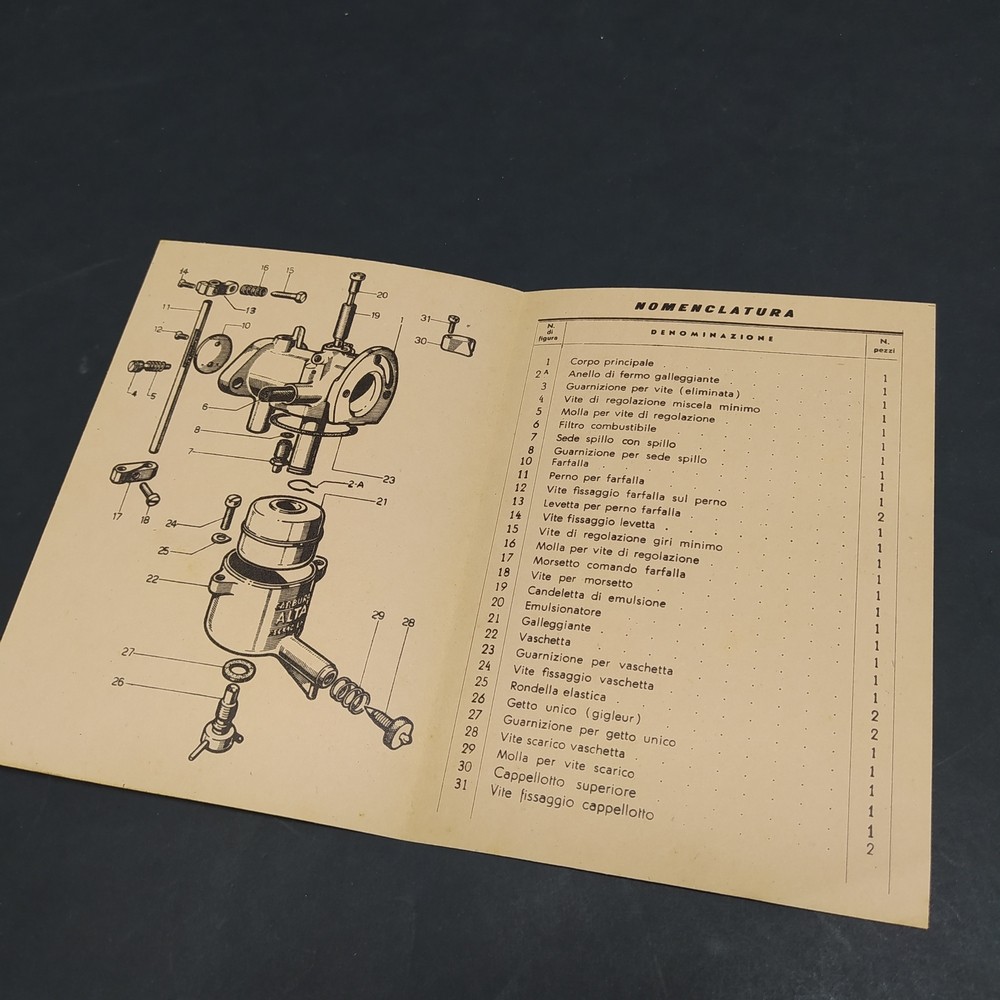 14
16
15
20
11
13
19
1
31
12
10
30
4
5
6
8
7
23
2·A
17
18
21
24
25
22
ALTA
29
28
27
26
NOMENCLATURA
N. di figura DENOMINAZIONE N. pezzi
1 Corpo principale 1
2A Anello di fermo galleggiante 1
3 Guarnizione per vite (eliminata) 1
4 Vite di regolazione miscela minimo 1
5 Molla per vite di regolazione 1
6 Filtro combustibile 1
7 Sede spillo con spillo 1
8 Guarnizione per sede spillo 1
10 Farfalla 1
11 Perno per farfalla 1
12 Vite fissaggio farfalla sul perno 2
13 Levetta per perno farfalla 1
14 Vite fissaggio levetta 1
15 Vite di regolazione giri minimo 1
16 Molla per vite di regolazione 1
17 Morsetto comando farfalla 1
18 Vite per morsetto 1
19 Candeletta di emulsione 1
20 Emulsionatore 1
21 Galleggiante 1
22 Vaschetta 1
23 Guarnizione per vaschetta 1
24 Vite fissaggio vaschetta 2
25 Rondella elastica 2
26 Getto unico (gigleur) 1
27 Guarnizione per getto unico 1
28 Vite scarico vaschetta 1
29 Molla per vite scarico 1
30 Cappellotto superiore 1
31 Vite fissaggio cappellotto 2